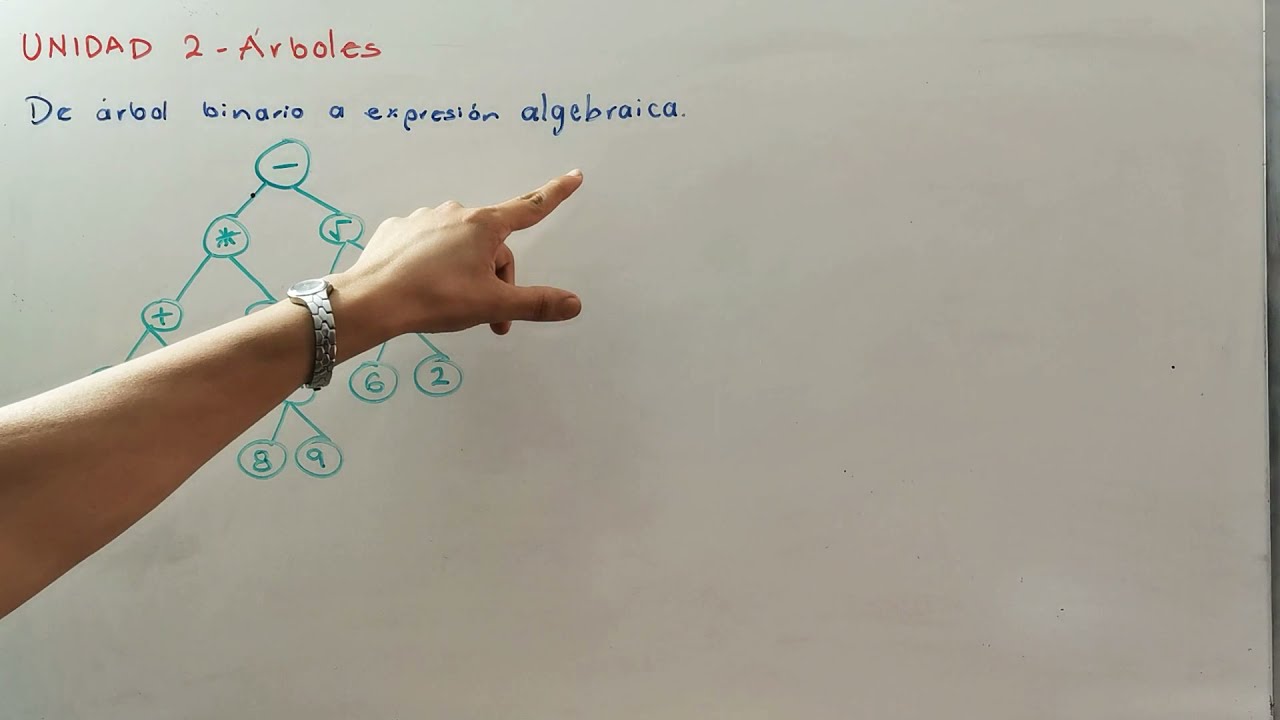 UNIDAD 2 - Árboles
De árbol binario a expresión algebraica.
−
* √
+
6 2
8 9